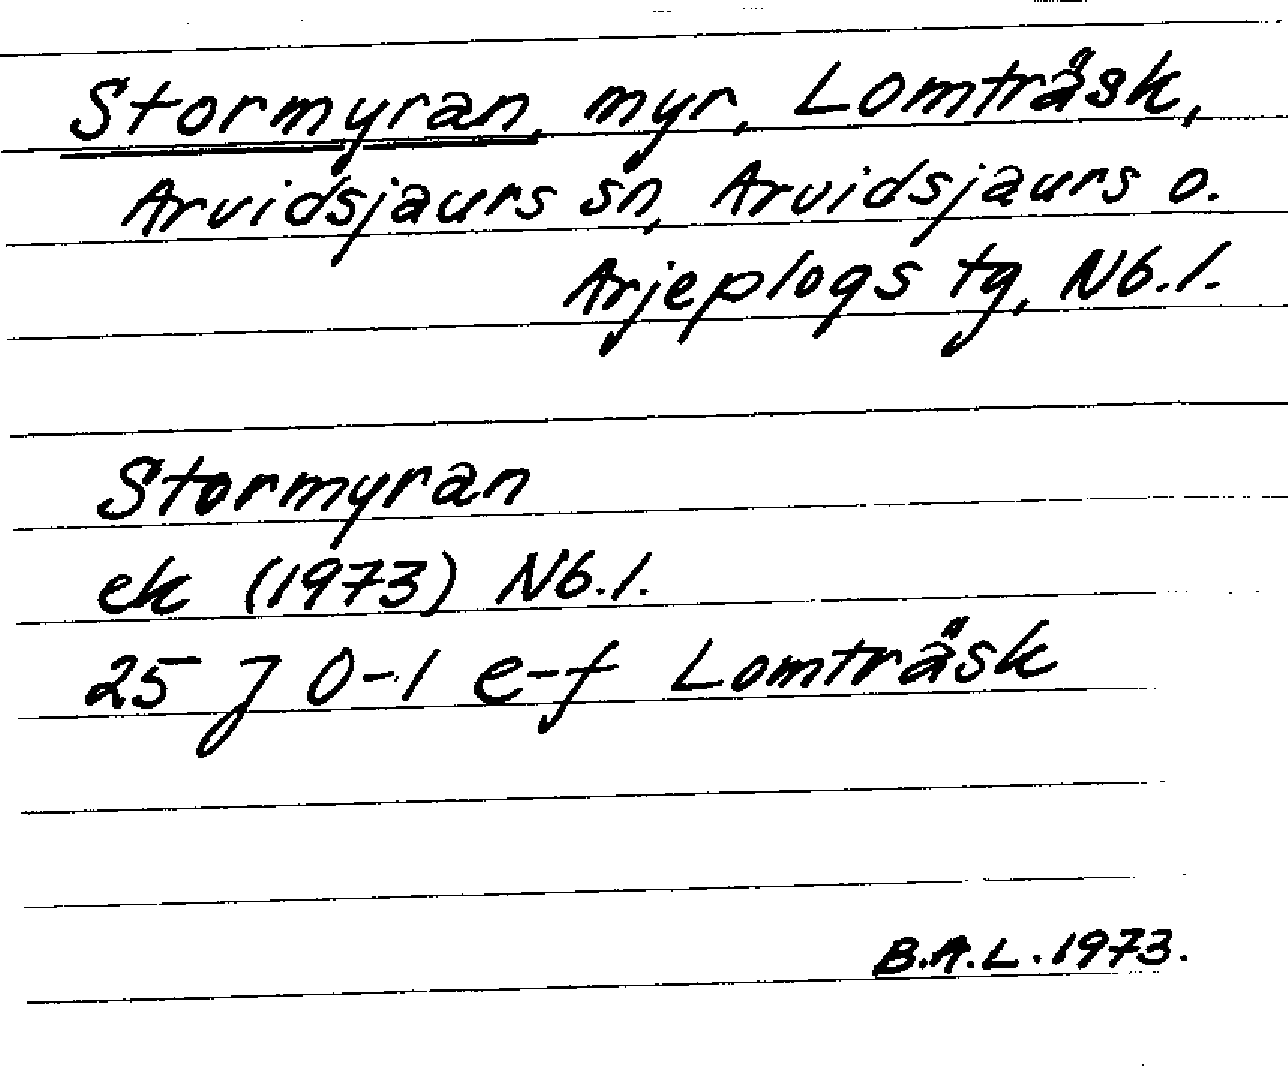 Stormyran, myr, Lomträsk,
Arvidsjaurs sn, Arvidsjaurs o.
Arjeplogs tg, Nb.l.
Stormyran
ek (1973) Nb.l.
25 J 0-1 e-f Lomträsk
B.A.L. 1973.